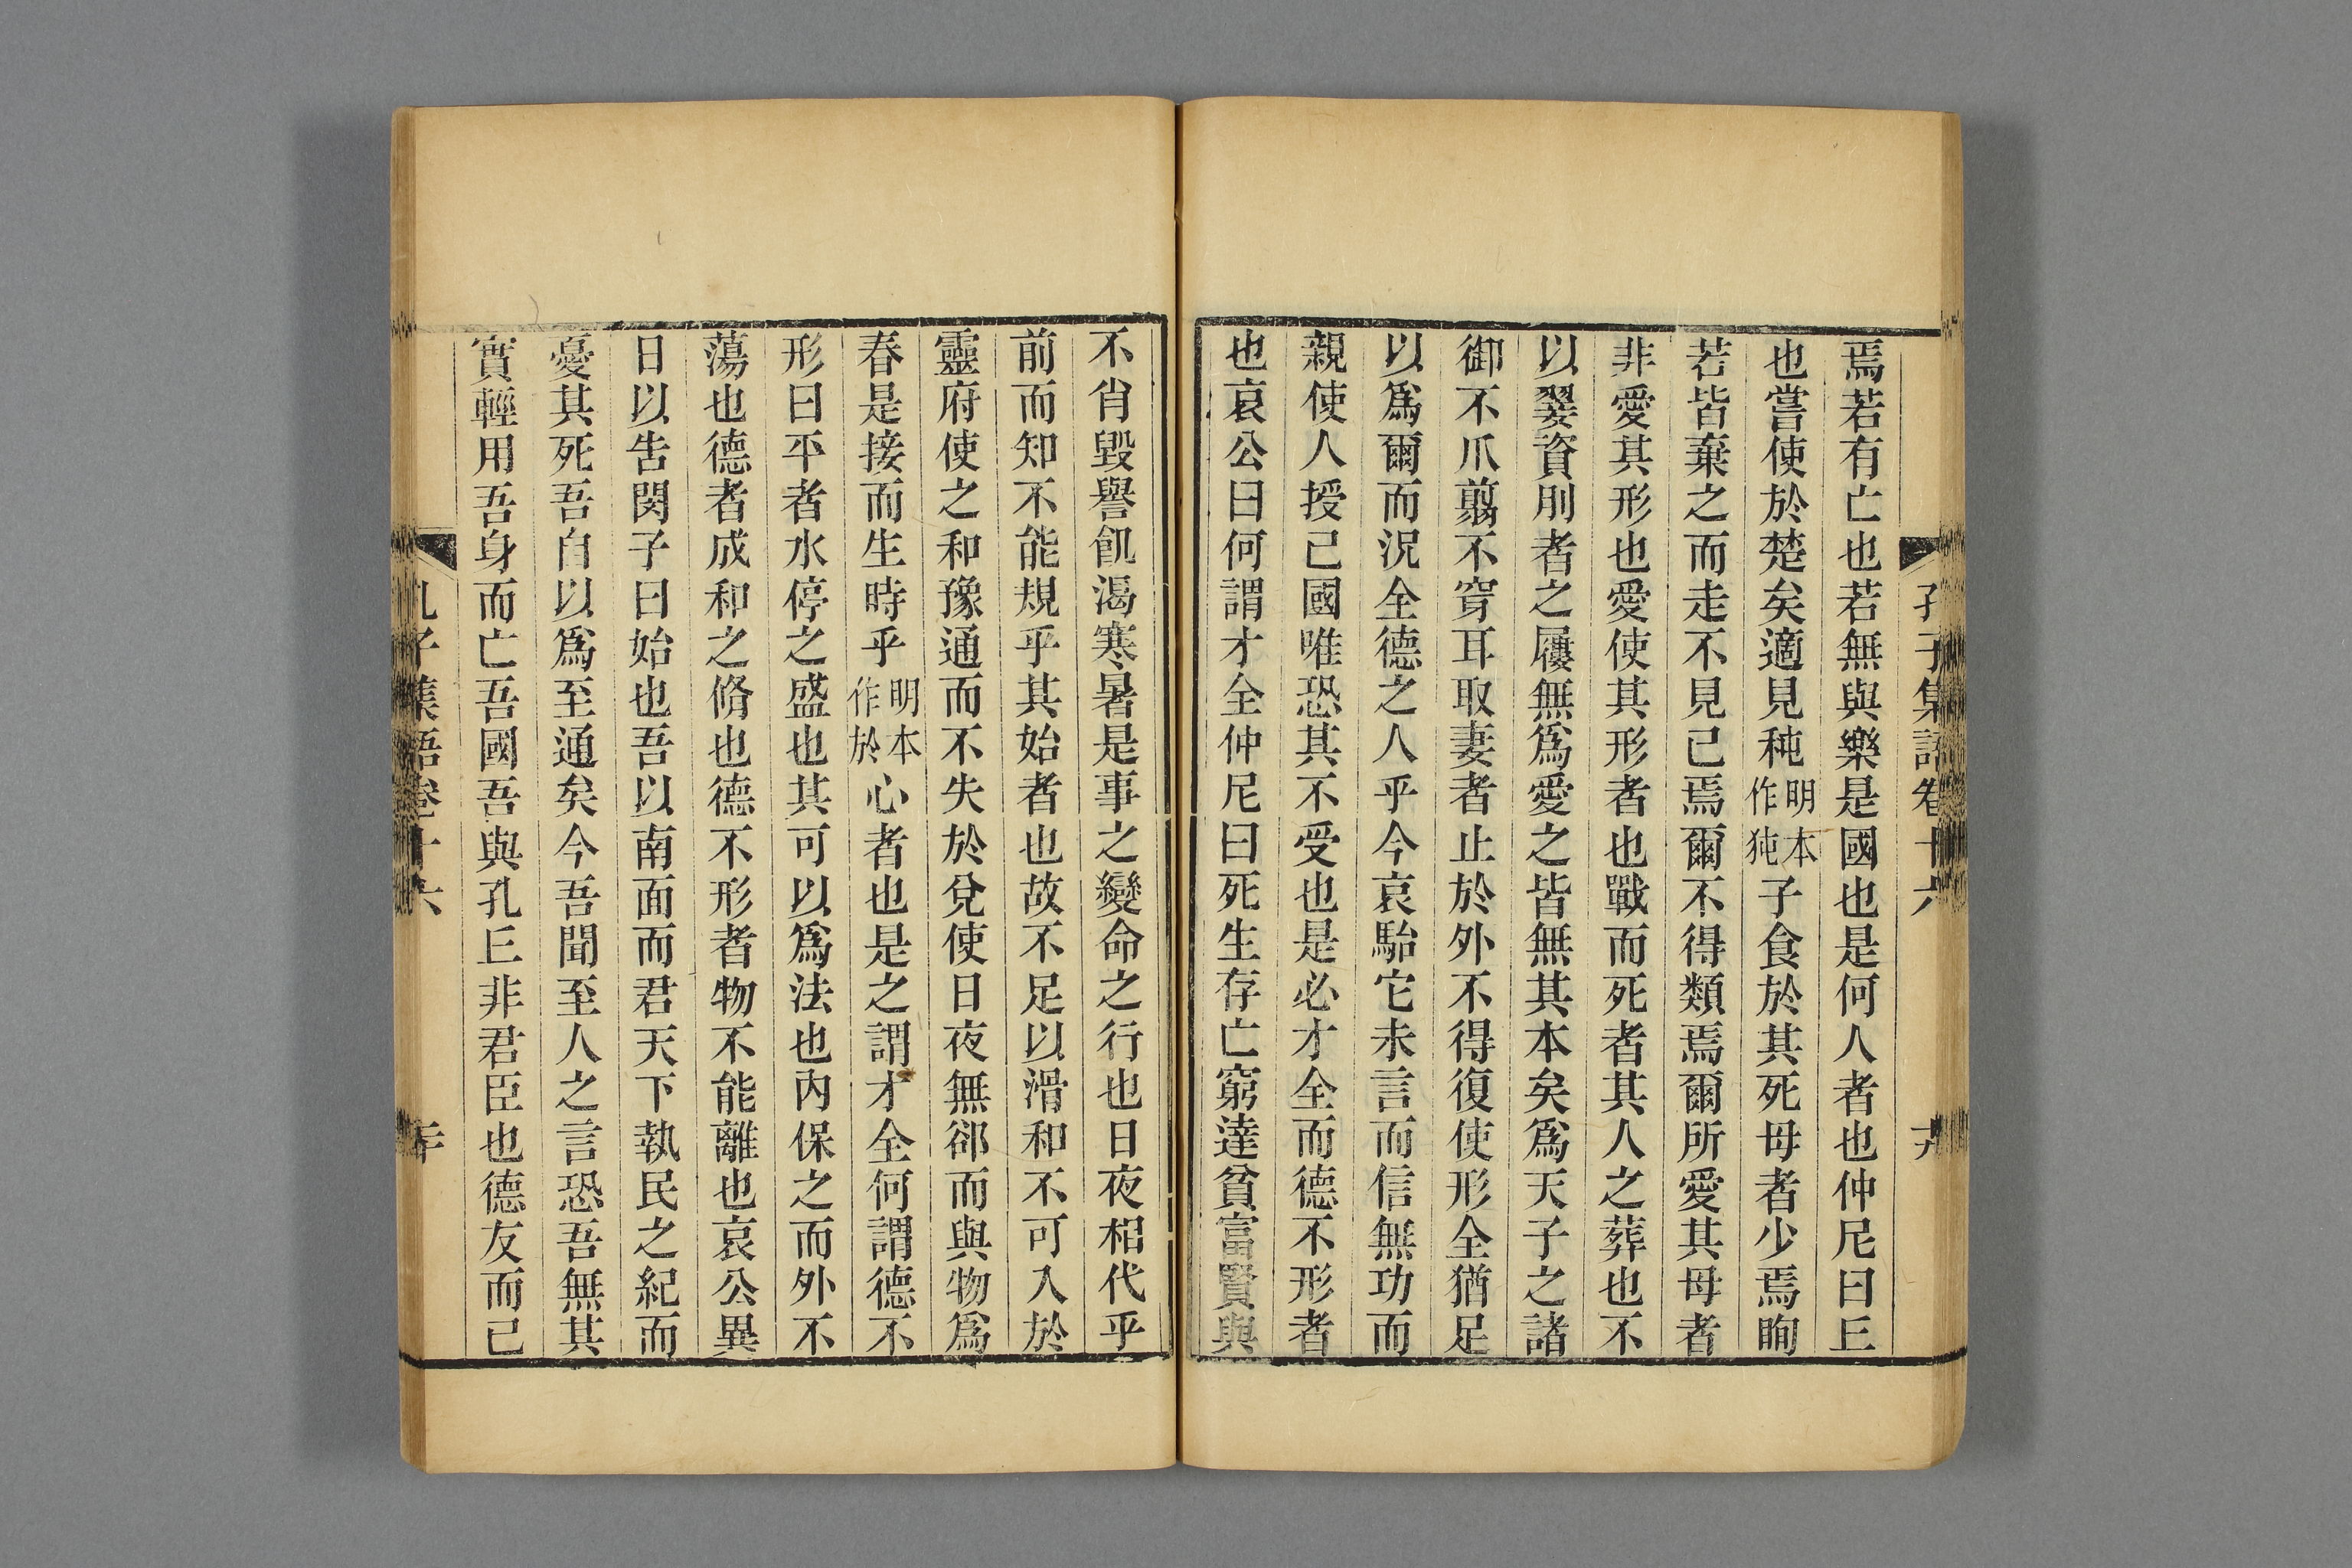 孔子集語卷十六 十九
焉若有亡也若無與樂是國也是何人者也仲尼曰𠀉
也嘗使於楚矣適見㹠明本作㹠子食於其死母者少焉眴
若皆棄之而走不見己焉爾不得類焉爾所愛其母者
非愛其形也愛使其形者也戰而死者其人之葬也不
以翣資刖者之屨無爲愛之皆無其本矣爲天子之諸
御不爪翦不穿耳取妻者止於外不得復使形全猶足
以爲爾而況全德之人乎今哀駘它未言而信無功而
親使人授己國唯恐其不受也是必才全而德不形者
也哀公曰何謂才全仲尼曰死生存亡窮達貧富賢與
不肖毀譽飢渴寒暑是事之變命之行也日夜相代乎
前而知不能規乎其始者也故不足以滑和不可入於
靈府使之和豫通而不失於兌使日夜無郤而與物爲
春是接而生時乎明本作於心者也是之謂才全何謂德不
形曰平者水停之盛也其可以爲法也內保之而外不
蕩也德者成和之脩也德不形者物不能離也哀公異
日以告閔子曰始也吾以南面而君天下執民之紀而
憂其死吾自以爲至通矣今吾聞至人之言恐吾無其
實輕用吾身而亡吾國吾與孔𠀉非君臣也德友而已
孔子集語卷十六 二十